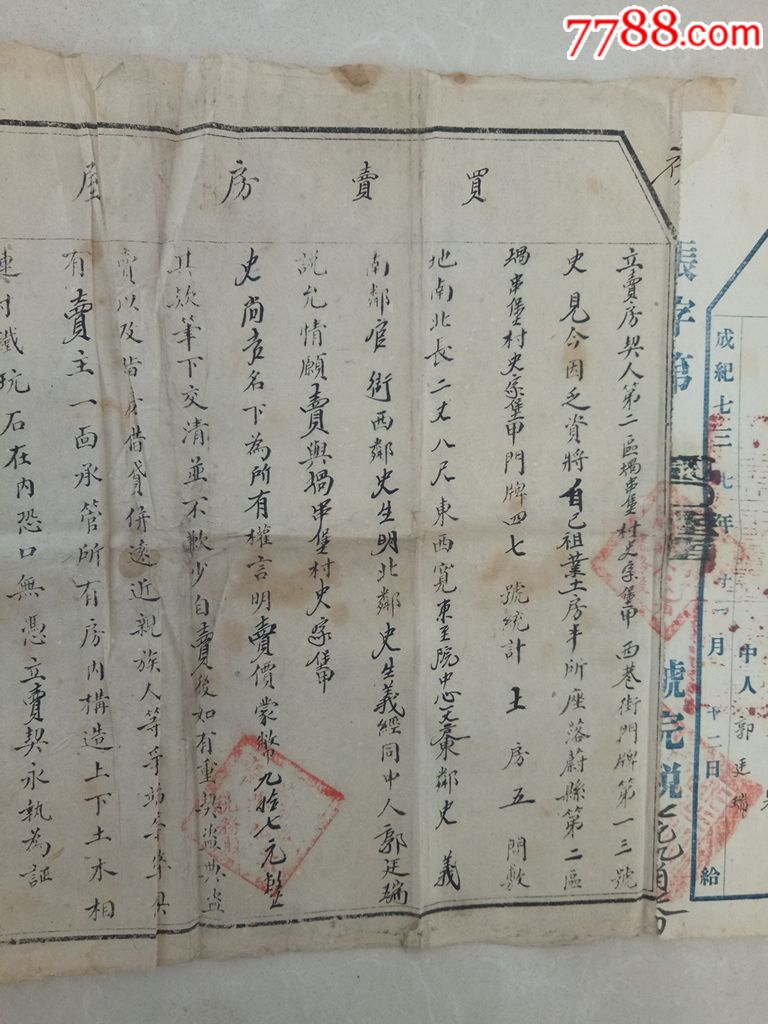 7788.com
買賣房屋
立賣房契人第二區堝串堡村史家堡甲西巷街門牌第一三號
史見今因乏資將自己祖業土房半所座落蔚縣第二區
堝串堡村史家堡甲門牌四七號統計土房五間敷
地南北長二丈八尺東西寬東至院中心東鄰史義
南鄰官街西鄰史生明北鄰史生義經同中人郭廷瑞
說允情願賣與堝串堡村史家堡甲
史尚名下為所有權言明賣價蒙幣九拾七元整
其款筆下交清並不欺少自賣後如有重契盜典盜
賣以及指房借貸併遠近親族人等爭端等率具
有賣主一面承管所有房內構造上下土木相
連村鐵玩石在內恐口無憑立賣契永執為証
張字第
號完說
成紀七三七年十一月十二日給
中人郭廷瑞